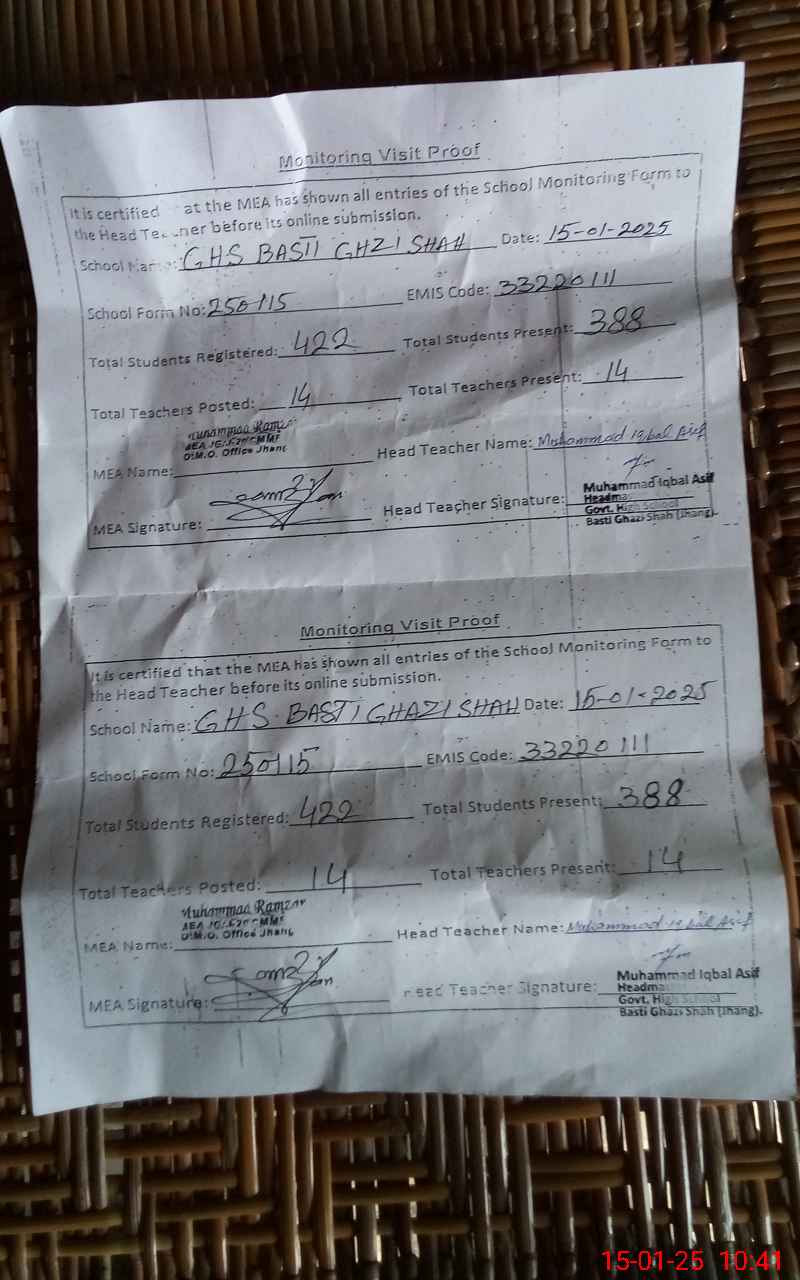 Monitoring Visit Proof
It is certified at the MEA has shown all entries of the School Monitoring Form to
the Head before its online submission.
School Name: GHS BASTI GHZI SHAH Date: 15-01-2025
School Form No: 250115 EMIS Code: 33220111
Total Students Registered: 422 Total Students Present: 388
Total Teachers Posted: 14 Total Teachers Present: 14
Muhammad
D.M.O. Office Jhang
MEA Name: Head Teacher Name: Muhammad Iqbal Asif
MEA Signature: Head Teacher Signature:
Muhammad Iqbal Asif
Headma
Govt. High School
Basti Ghazi Shah (Jhang).
Monitoring Visit Proof
It is certified that the MEA has shown all entries of the School Monitoring Form to
the Head Teacher before its online submission.
School Name: GHS BASTI GHAZI SHAH Date: 15-01-2025
School Form No: 250115 EMIS Code: 33220111
Total Students Registered: 422 Total Students Present: 388
Total Teachers Posted: 14 Total Teachers Present: 14
Muhammad
D.M.O. Office Jhang
MEA Name: Head Teacher Name: Muhammad Iqbal Asif
MEA Signature: Head Teacher Signature:
Muhammad Iqbal Asif
Headma
Govt. High School
Basti Ghazi Shah (Jhang).
15-01-25 10:41